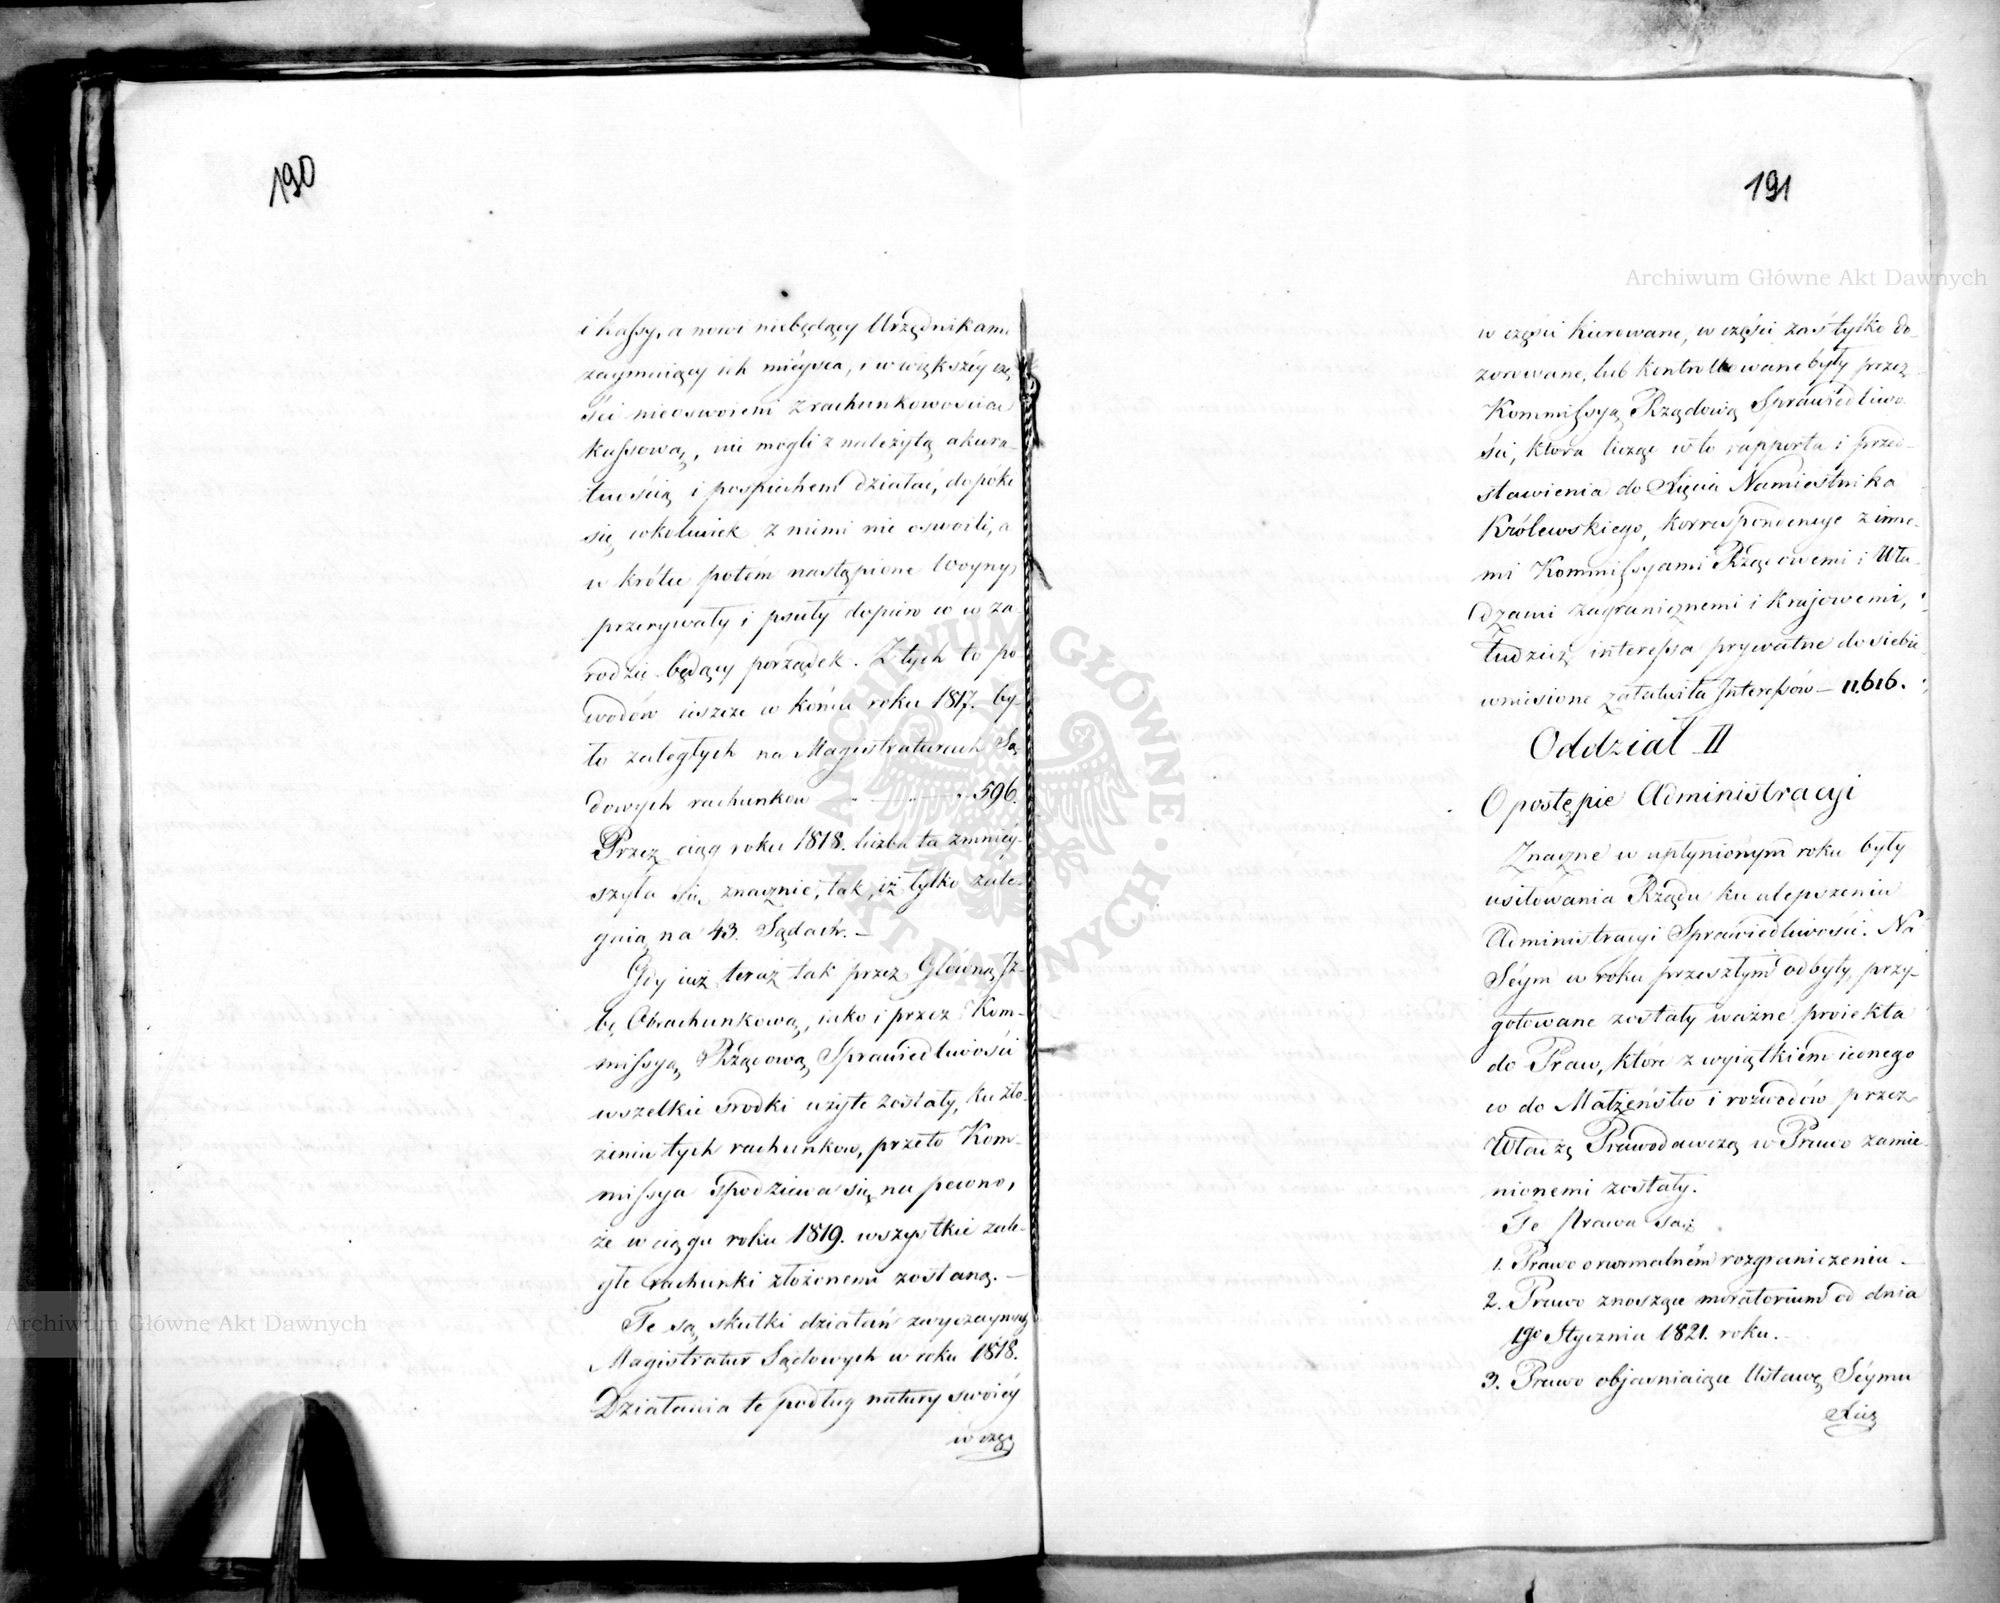 190
i kassy, a nowi niebędący Urzędnikami
zaymuiący ich mieysca, i w większéy czę
ści nieoswoieni z rachunkowością
kassową, nie mogli z należytą akura-
tnością i pospiechem działać, dopóki
się cokolwiek z niemi nie oswoili, a
w krótce potém nastąpione Woyny,
przerywały i psuły dopiero w w za
rodzie będący porządek. Z tych to po-
wodów ieszcze w końcu roku 1817. by-
ło zaległych na Magistraturach Są
dowych rachunkow 596.
Przez ciąg roku 1818. liczba ta zmniéy-
szyła się znacznie, tak, iż tylko zale-
gaią na 43. Sądach.
Gdy iuż teraz tak przez Główną Iz-
bę Obrachunkową, iako i przez Kom-
missyą Rządową Sprawiedliwości
wszelkie srodki użyte zostały, ku zło-
żeniu tych rachunkow, przeto Kom-
missya spodziewa się na pewno,
że w ciągu roku 1819. wszystkie zale-
głe rachunki złożonemi zostaną.
Te są skutki działań zwyczaynych
Magistratur Sądowych w roku 1818.
Działania te podług natury swoiéy
w czę
191
w części kierowane, w części zaś tylko do-
zorowane, lub kontrollowane były przez
Kommissyą Rządową Sprawiedliwo-
ści, która licząc w to rapporta i przed-
stawienia do Xięcia Namiestnika
Królewskiego, korrespondencye z inne-
mi Kommissyami Rządowemi i Wła-
dzami zagranicznemi i krajowemi,
tudzież interessa prywatne do siebie
wniesione załatwiła Interessów 11,616.
Oddział II
O postępie Administracyi
Znaczne w upłynionym roku były
usiłowania Rządu ku ulepszeniu
Administracyi Sprawiedliwości. Na
Séym w roku przeszłym odbyty, przy-
gotowane zostały ważne proiekta
do Praw, które z wyiątkiem iednego
co do Małżeństw i rozwodów przez
Władzę Prawodawczą w Prawo zamie-
nionemi zostały.
Te Prawa są:
1. Prawo o normalném rozgraniczeniu
2. Prawo znoszące moratorium od dnia
1go Stycznia 1821. roku.
3. Prawo objaśniaiące Ustawę Séymu
Xięz
Archiwum Główne Akt Dawnych
Archiwum Główne Akt Dawnych
ARCHIWUM GŁÓWNE AKT DAWNYCH